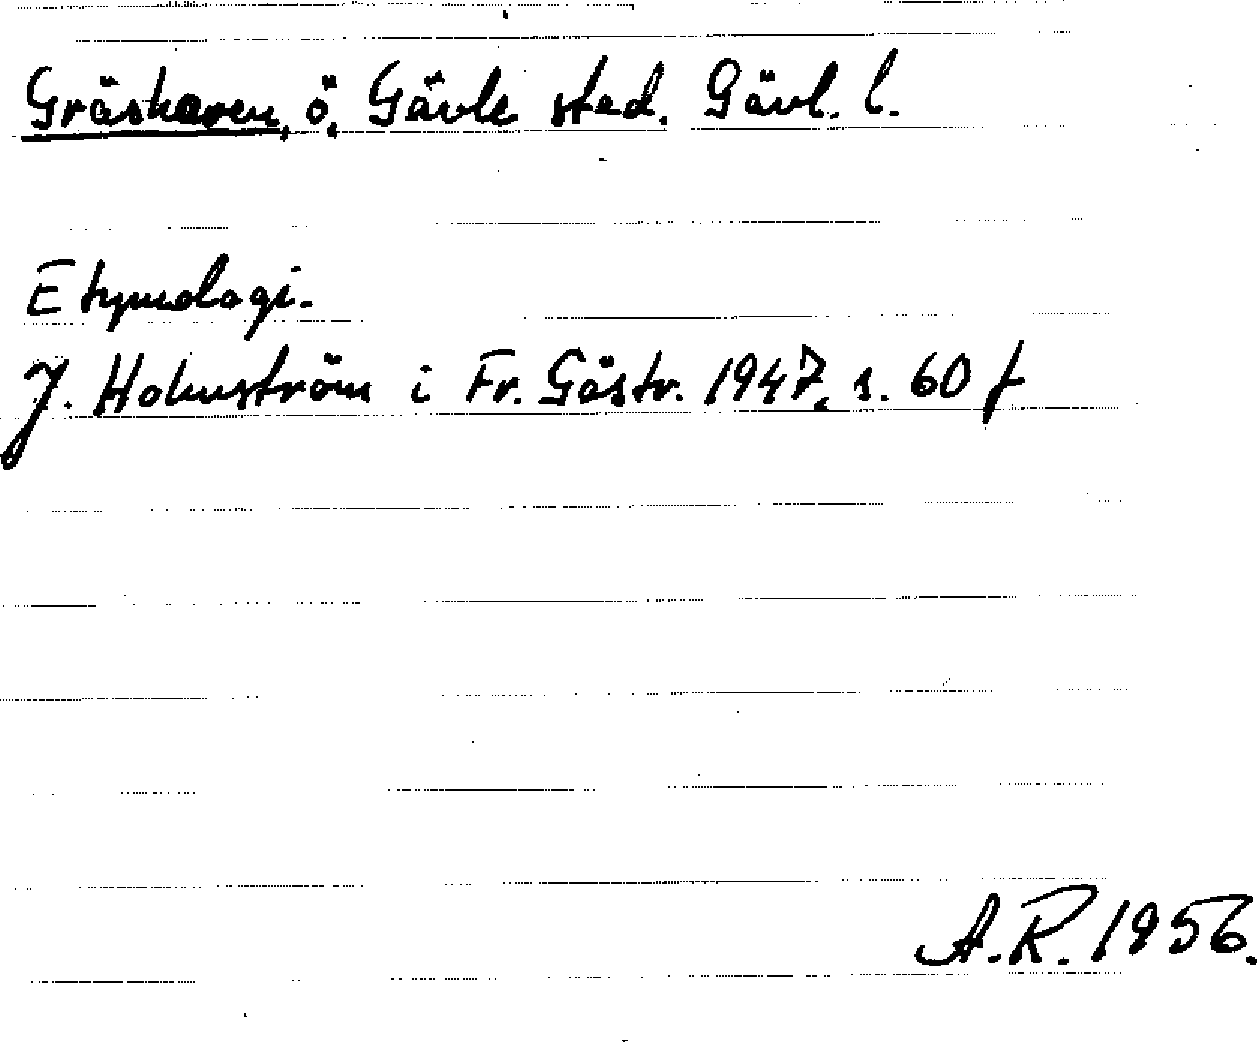 Gräsharen, ö, Gävle stad. Gävl. l.
Etymologi.
J. Holmström i Fr. Gästr. 1947, s. 60 f
A.R. 1956.